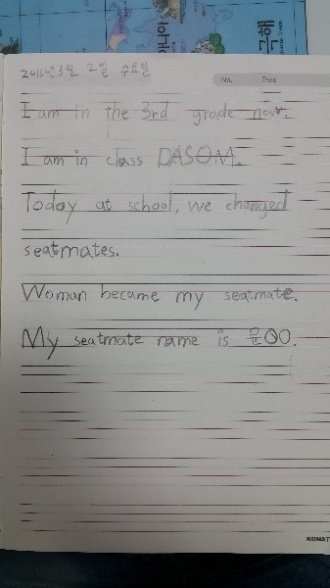 2016년 3월 2일 수요일
No. Date
I am in the 3rd grade now.
I am in class DASOM.
Today at school, we changed
seatmates.
Woman became my seatmate.
My seatmate name is 문OO.